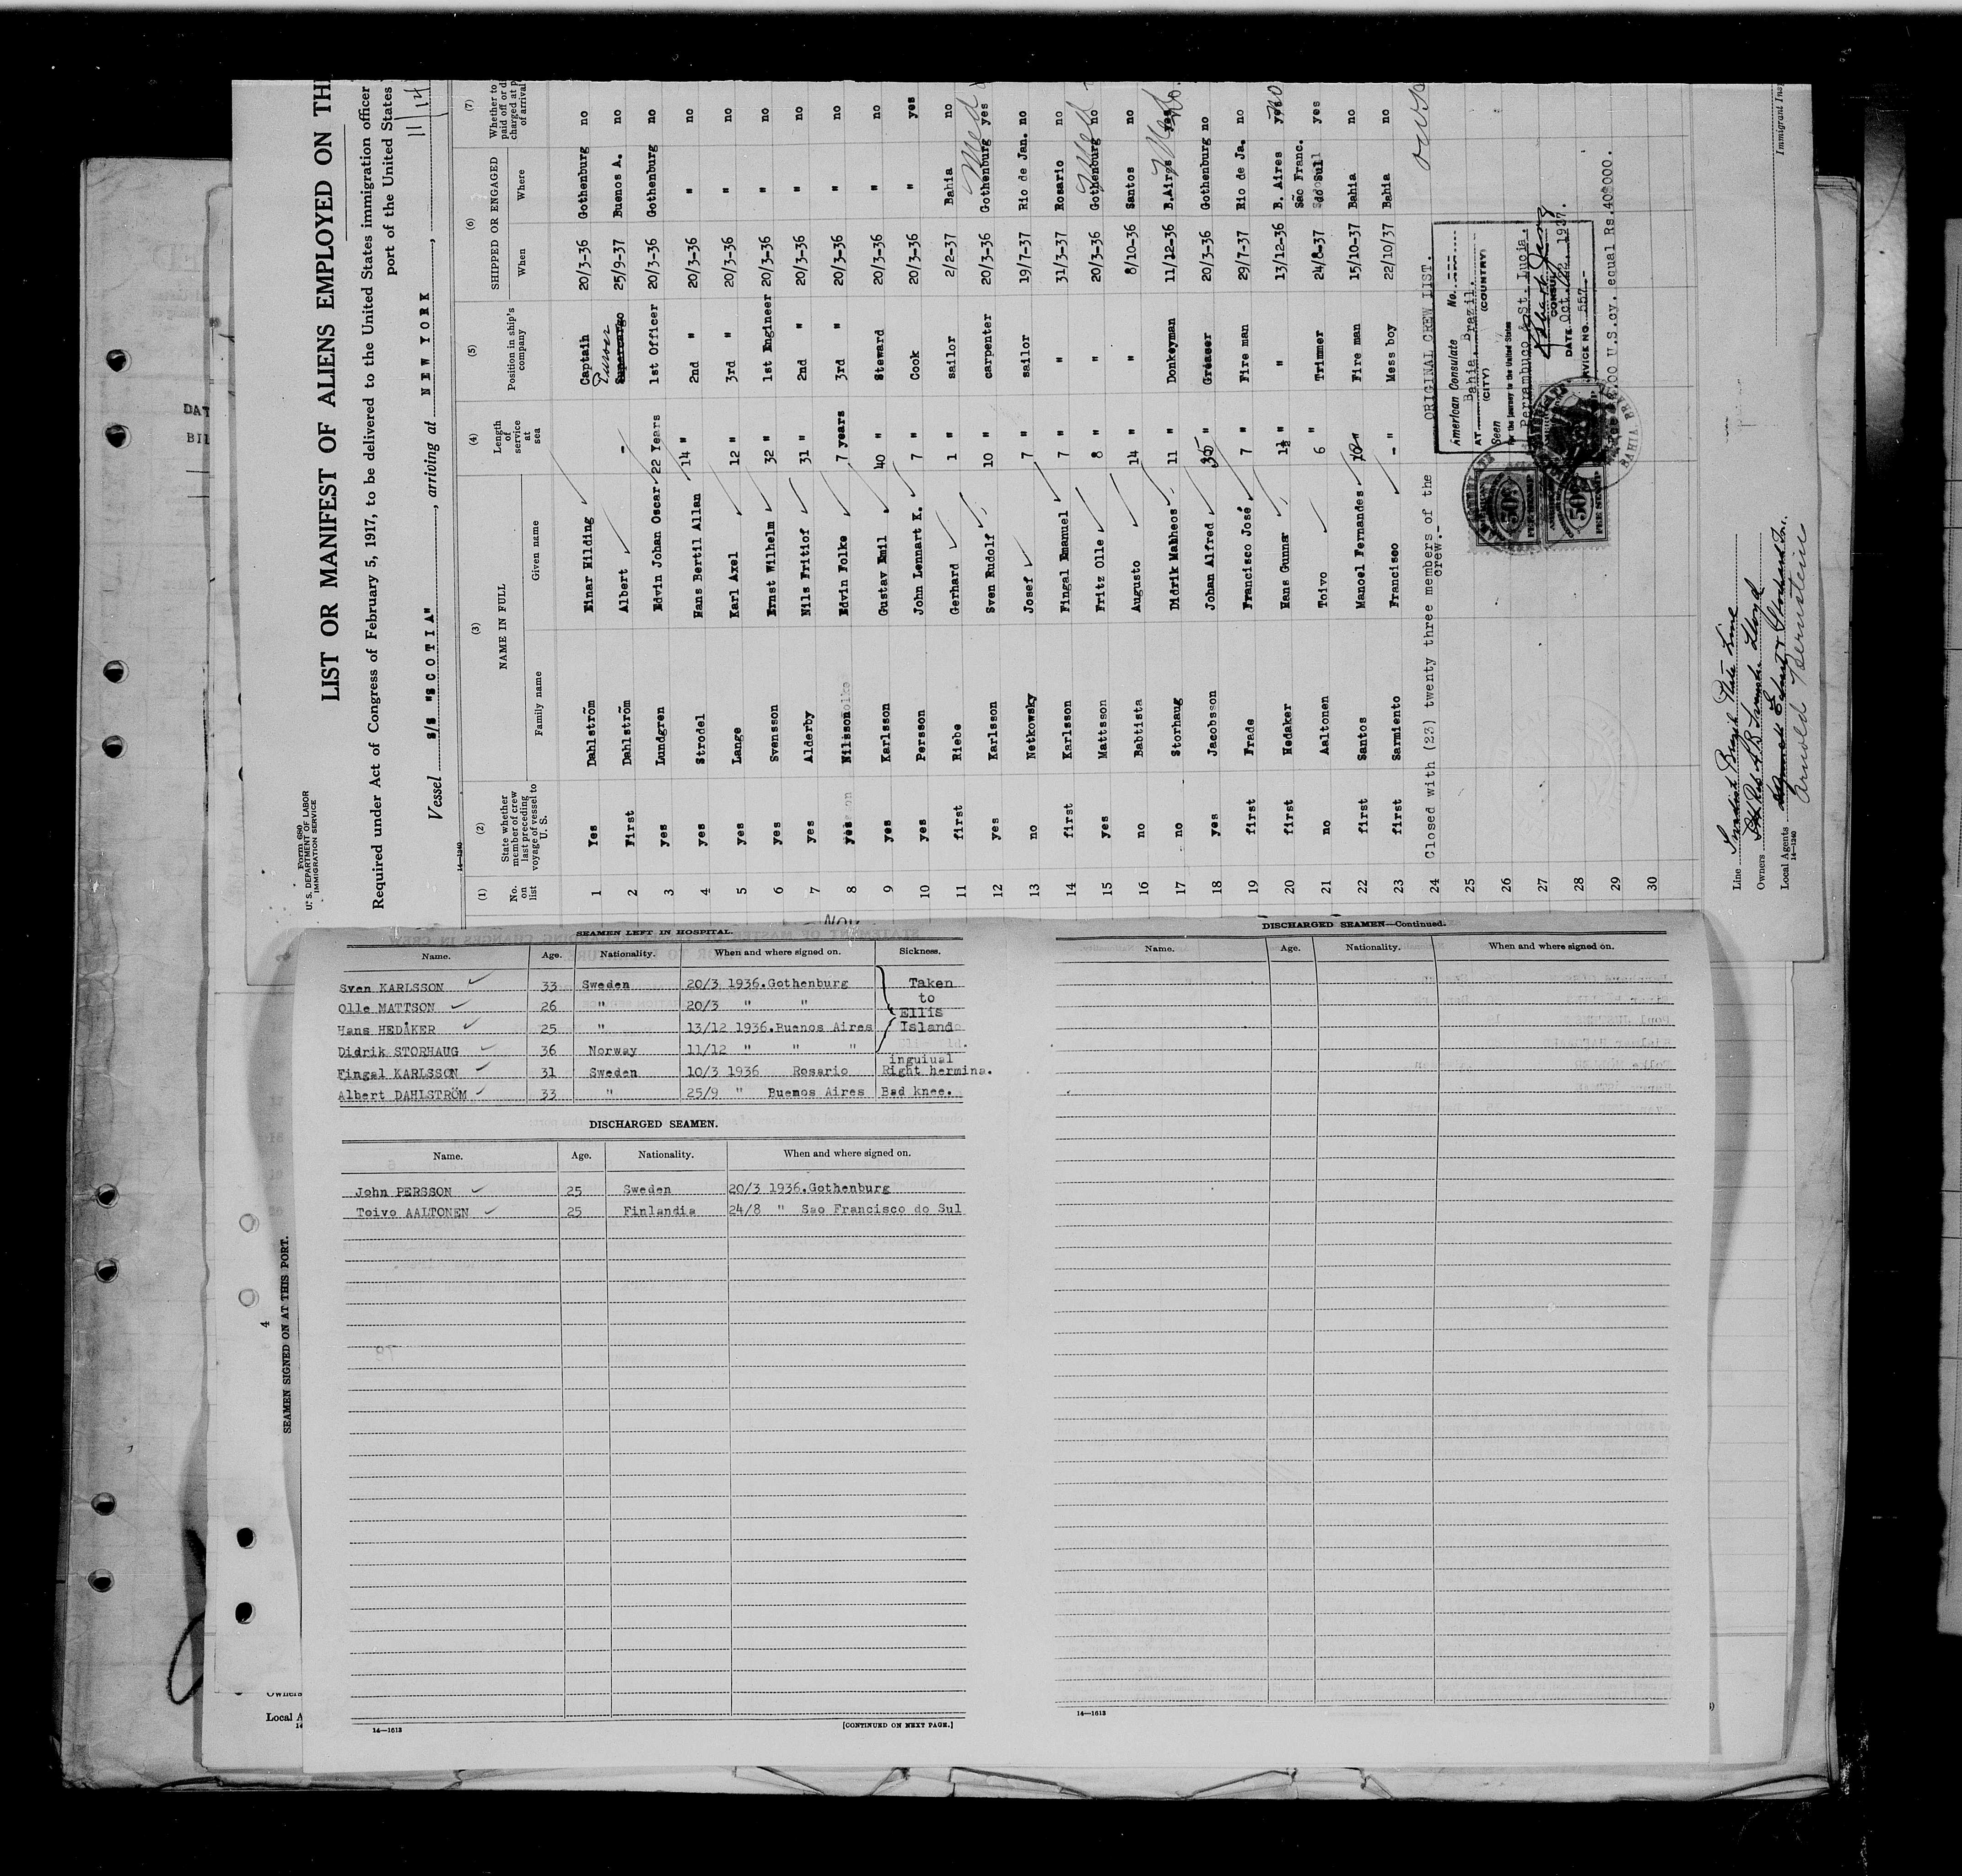 Form 680
U. S. DEPARTMENT OF LABOR
IMMIGRATION SERVICE
LIST OR MANIFEST OF ALIENS EMPLOYED ON TH
Required under Act of Congress of February 5, 1917, to be delivered to the United States immigration officer
port of the United States
11 14
Vessel S/S "S C O T I A", arriving at N E W Y O R K,
14—1240
(1) (2) (3) (4) (5) (6) (7)
No. on list State whether member of crew last preceding voyage of vessel to U. S. NAME IN FULL Length of service at sea Position in ship's company SHIPPED OR ENGAGED Whether to paid off or d charged at p of arrival
Family name Given name When Where
1 Yes Dahlström Einar Hilding Captain 20/3-36 Gothenburg no
2 First Dahlström Albert - Supercargo Purser 25/9-37 Buenos A. no
3 yes Lundgren Edvin Johan Oscar 22 Years 1st Officer 20/3-36 Gothenburg no
4 yes Strodel Hans Bertil Allan 14 " 2nd " 20/3-36 " no
5 yes Lange Karl Axel 12 " 3rd " 20/3-36 " no
6 yes Svensson Ernst Wilhelm 32 " 1st Engineer 20/3-36 " no
7 yes Alderby Nils Fritiof 31 " 2nd " 20/3-36 " no
8 yes Nilsson Edvin Folke 7 years 3rd " 20/3-36 " no
9 yes Karlsson Gustav Emil 40 " Steward 20/3-36 " no
10 yes Persson John Lennart K. 7 " Cook 20/3-36 " yes
11 first Riebe Gerhard 1 " sailor 2/2-37 Bahia no
12 yes Karlsson Sven Rudolf 10 " carpenter 20/3-36 Gothenburg yes Med
13 no Netkowsky Josef 7 " sailor 19/7-37 Rio de Jan. no
14 first Karlsson Fingal Emanuel 7 " " 31/3-37 Rosario no
15 yes Mattsson Fritz Olle 8 " " 20/3-36 Gothenburg no Med
16 no Babtista Augusto 14 " " 8/10-36 Santos no
17 no Storhaug Didrik Mahheos 11 " Donkeyman 11/12-36 B.Aires yes Med
18 yes Jacobsson Johan Alfred 35 " Greaser 20/3-36 Gothenburg no
19 first Frade Francisco José 7 " Fire man 29/7-37 Rio de Ja. no
20 first Hedaker Hans Gunnar 1½ " " 13/12-36 B. Aires yes no
21 no Aaltonen Toivo 6 " Trimmer 24/8-37 São Franc. do Sul yes
22 first Santos Manoel Fernandes 10 " Fire man 15/10-37 Bahia no
23 first Sarmiento Francisco - " Mess boy 22/10/37 Bahia no
24 Closed with (23) twenty three members of the ORIGINAL CREW LIST.
crew.-
25
26
27
28
29
30
American Consulate No.
AT Bahia, Brazil.
(CITY) (COUNTRY)
Seen
For the journey to the United States
Pernambuco & St. Lucia.
CONSUL
DATE Oct. 22, 1937.
SERVICE NO. 557.-
.00 U.S.cy. equal Rs.40$000.
BAHIA BRAZIL
50c
FEE STAMP
50c
FEE STAMP
Line
Owners
Local Agents
Arnold Bernstein
14—1240
Immigrant Insp
DAT
BIL
Nov
SEAMEN LEFT IN HOSPITAL.
Name. Age. Nationality. When and where signed on. Sickness.
Sven KARLSSON 33 Sweden 20/3 1936.Gothenburg Taken
Olle MATTSON 26 " 20/3 " " to
Ellis
Hans HEDÅKER 25 " 13/12 1936.Buenos Aires Island
Didrik STORHAUG 36 Norway 11/12 " " "
inguiual
Fingal KARLSSON 31 Sweden 10/3 1936 Rosario Right hermina.
Albert DAHLSTRÖM 33 " 25/9 " Buenos Aires Bad knee.
DISCHARGED SEAMEN.
Name. Age. Nationality. When and where signed on.
John PERSSON 25 Sweden 20/3 1936.Gothenburg
Toivo AALTONEN 25 Finlandia 24/8 " Sao Francisco do Sul
14—1613
[CONTINUED ON NEXT PAGE.]
DISCHARGED SEAMEN—Continued.
Name. Age. Nationality. When and where signed on.
14—1613
4
SEAMEN SIGNED ON AT THIS PORT.
Owners
Local A
14